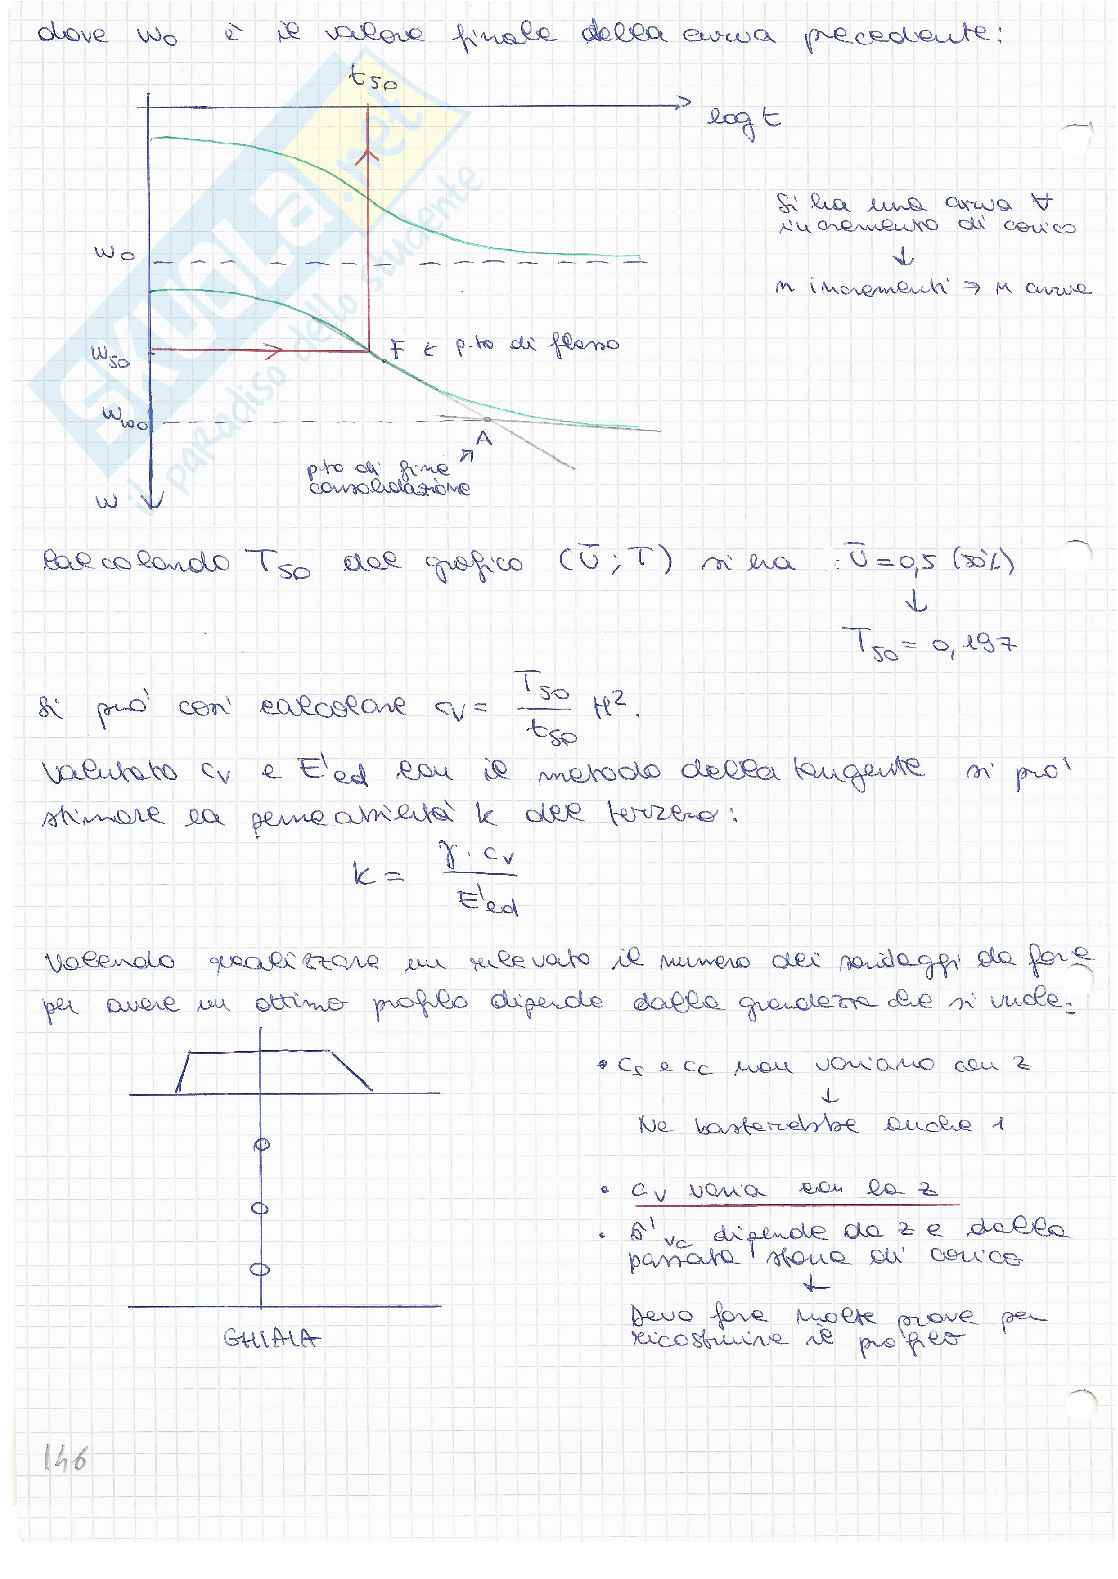 dove w₀ è il valore finale della curva precedente:
t₅₀
log t
Si ha una curva ∀
incremento di carico
↓
n incrementi ⇒ n curve
w₀
w₅₀
F ← p.to di flesso
w₁₀₀
A
p.to di fine
consolidazione
w
SKUOLA.net
il paradiso dello studente
Calcolando T₅₀ dal grafico (Ū; T) si ha : Ū = 0,5 (50%)
↓
T₅₀ = 0,197
Si può così calcolare cv = T₅₀/t₅₀ H².
Valutato cv e E'ed con il metodo della tangente si può
stimare la permeabilità k del terreno:
k = γ · cv / E'ed
Volendo realizzare un rilevato il numero dei sondaggi da fare
per avere un ottimo profilo dipende dalla grandezza che si vuole.
• cs e cc non variano con z
↓
Ne basterebbe anche 1
• cv varia con la z
• σ'vc dipende da z e dalla
passata storia di carico
↓
Devo fare molte prove per
ricostruire il profilo
GHIAIA
146